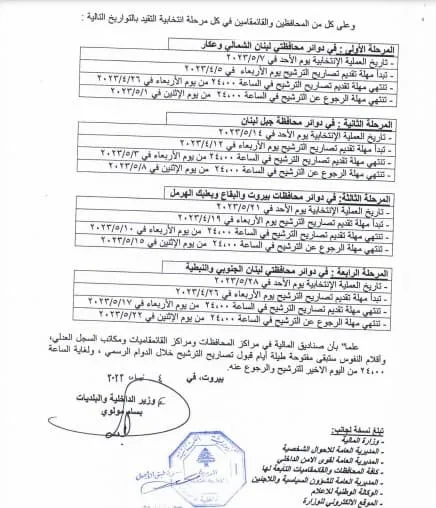 وعلى كل من المحافظين والقائمقامين في كل مرحلة انتخابية التقيد بالتواريخ التالية :
المرحلة الأولى : في دوائر محافظتي لبنان الشمالي وعكار
- تاريخ العملية الإنتخابية يوم الأحد في ٢٠٢٣/٥/٧
- تبدأ مهلة تقديم تصاريح الترشيح يوم الأربعاء في ٢٠٢٣/٤/٥
- تنتهي مهلة تقديم تصاريح الترشيح في الساعة ٢٤،٠٠ من يوم الأربعاء في ٢٠٢٣/٤/٢٦
- تنتهي مهلة الرجوع عن الترشيح في الساعة ٢٤،٠٠ من يوم الإثنين في ٢٠٢٣/٥/١
المرحلة الثانية : في دوائر محافظة جبل لبنان
- تاريخ العملية الإنتخابية يوم الأحد في ٢٠٢٣/٥/١٤
- تبدأ مهلة تقديم تصاريح الترشيح يوم الأربعاء في ٢٠٢٣/٤/١٢
- تنتهي مهلة تقديم تصاريح الترشيح في الساعة ٢٤،٠٠ من يوم الأربعاء في ٢٠٢٣/٥/٣
- تنتهي مهلة الرجوع عن الترشيح في الساعة ٢٤،٠٠ من يوم الإثنين في ٢٠٢٣/٥/٨
المرحلة الثالثة : في دوائر محافظات بيروت والبقاع وبعلبك الهرمل
- تاريخ العملية الإنتخابية يوم الأحد في ٢٠٢٣/٥/٢١
- تبدأ مهلة تقديم تصاريح الترشيح يوم الأربعاء في ٢٠٢٣/٤/١٩
- تنتهي مهلة تقديم تصاريح الترشيح في الساعة ٢٤،٠٠ من يوم الأربعاء في ٢٠٢٣/٥/١٠
- تنتهي مهلة الرجوع عن الترشيح في الساعة ٢٤،٠٠ من يوم الإثنين في ٢٠٢٣/٥/١٥
المرحلة الرابعة : في دوائر محافظتي لبنان الجنوبي والنبطية
- تاريخ العملية الإنتخابية يوم الأحد في ٢٠٢٣/٥/٢٨
- تبدأ مهلة تقديم تصاريح الترشيح يوم الأربعاء في ٢٠٢٣/٤/٢٦
- تنتهي مهلة تقديم تصاريح الترشيح في الساعة ٢٤،٠٠ من يوم الأربعاء في ٢٠٢٣/٥/١٧
- تنتهي مهلة الرجوع عن الترشيح في الساعة ٢٤،٠٠ من يوم الإثنين في ٢٠٢٣/٥/٢٢
علماً بأن صناديق المالية في مراكز المحافظات ومراكز القائمقاميات ومكاتب السجل العدلي،
وأقلام النفوس ستبقى مفتوحة طيلة أيام قبول تصاريح الترشيح خلال الدوام الرسمي ، ولغاية الساعة
٢٤،٠٠ من اليوم الاخير للترشيح والرجوع عنه.
بيروت، في ٤
وزير الداخلية والبلديات
بسام مولوي
تبلغ نسخة لجانب:
- وزارة المالية
- المديرية العامة للأحوال الشخصية
- المديرية العامة لقوى الامن الداخلي
- كافة المحافظات والقائمقاميات التابعة لها
- المديرية العامة للشؤون السياسية واللاجئين
- الوكالة الوطنية للاعلام
- الموقع الالكتروني للوزارة